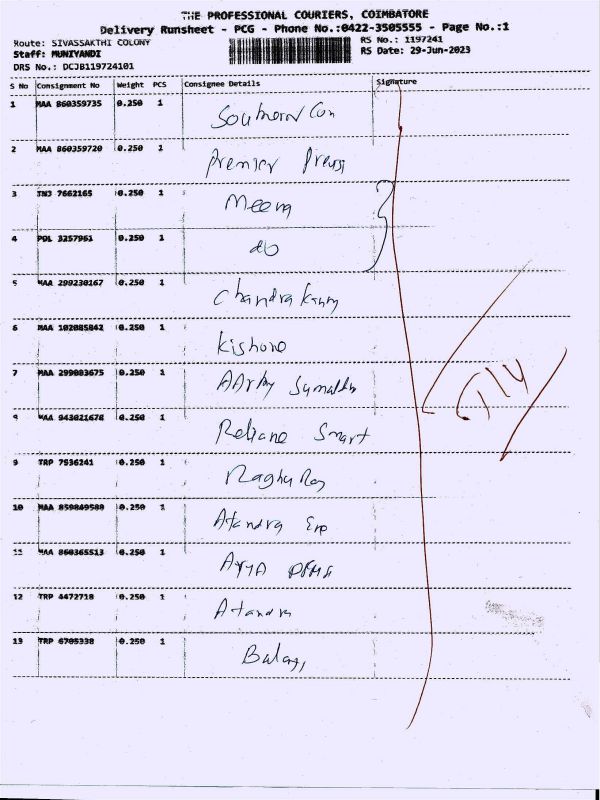 THE PROFESSIONAL COURIERS, COIMBATORE
Delivery Runsheet - PCG - Phone No.:0422-3505555 - Page No.:1
Route: SIVASSAKTHI COLONY
RS No.: 1197241
Staff: MUNIYANDI
RS Date: 29-Jun-2023
DRS No.: DCJB119724101
S No Consignment No Weight PCS Consignee Details Signature
1 MAA 860359735 0.250 1 Southern Con
2 MAA 860359720 0.250 1 Premier
3 TNJ 7662165 0.250 1 Meera
4 POL 3257961 0.250 1 do
5 MAA 299230167 0.250 1
6 MAA 102085842 0.250 1 Kishore
7 MAA 299003675 0.250 1
8 MAA 943021678 0.250 1 Reliane Smart
9 TRP 7936241 0.250 1 Raghu Raj
10 MAA 859849589 0.250 1 Atandra
11 MAA 860365513 0.250 1
12 TRP 4472718 0.250 1 Atandra
13 TRP 6705338 0.250 1 Balaji